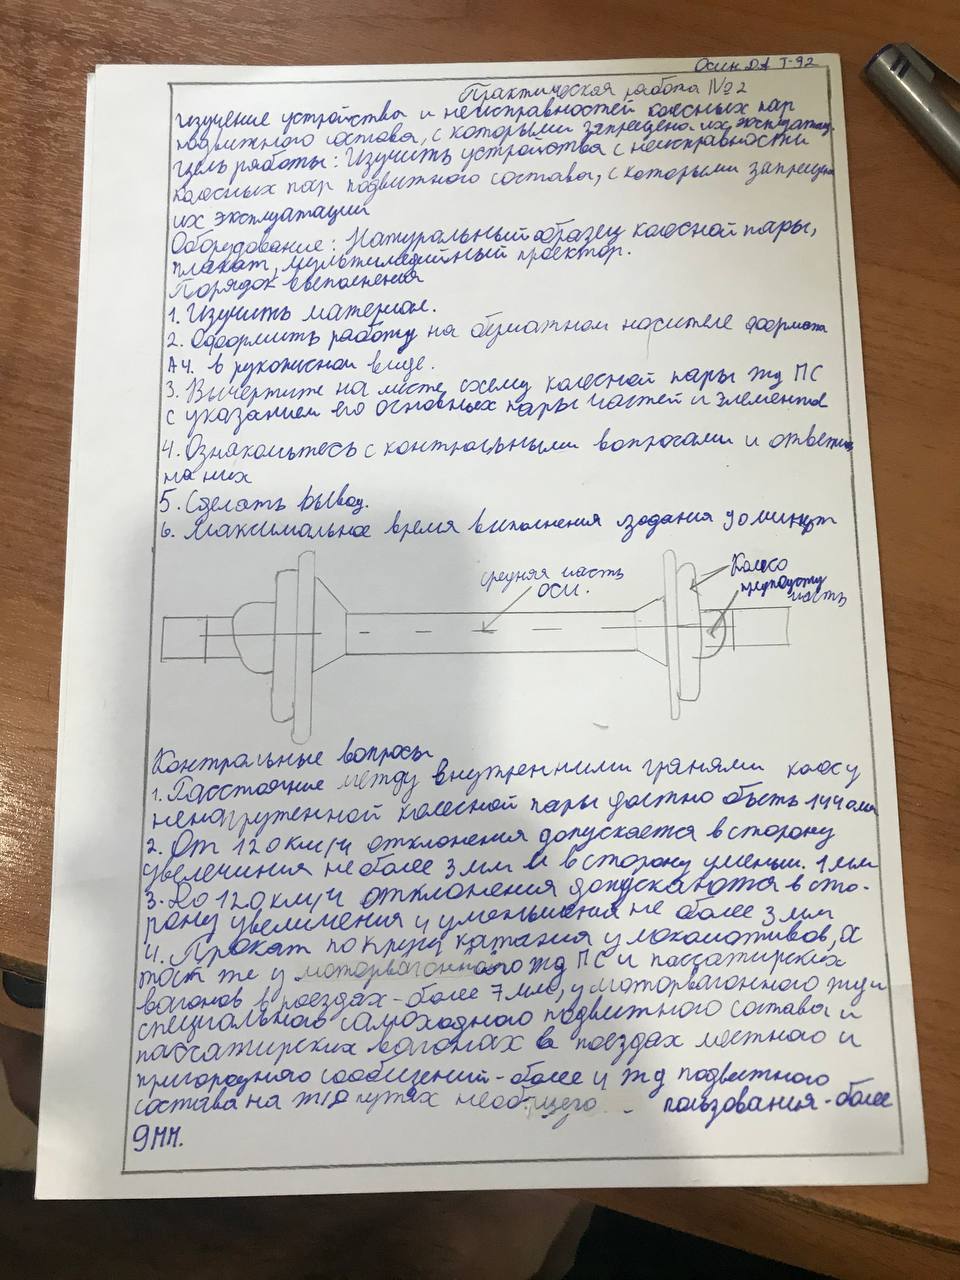 Осин Д.А Т-92
Практическая работа №2
изучение устройства и неисправностей колесных пар
подвижного состава, с которыми запрещена их эксплуатац.
Цель работы: Изучить устройства с неисправности
колесных пар подвижного состава, с которыми запрещен
их эксплуатации
Оборудование: Натуральный образец колесной пары,
плакат, мультимедийный проектор.
Порядок выполнения
1. Изучить материал.
2. Оформить работу на бумажном носителе формата
А4. в рукописном виде.
3. Вычертите на листе схему колесной пары жд ПС
с указанием его основных пары частей и элементов
4. Ознакомьтесь с контрольными вопросами и ответить
на них
5. Сделать вывод.
6. Максимальное время выполнения задания 90 минут
средняя часть
оси.
Колесо
часть
Контрольные вопросы
1. Расстояние между внутренними гранями колес у
ненагруженной колесной пары должно быть 1440мм
2. От 120 км/ч отклонения допускается в сторону
увеличения не более 3 мм и в сторону уменьш. 1 мм
3. До 120 км/ч отклонения допускаются в сто-
рону увеличения и уменьшения не более 3 мм
4. Прокат по кругу катания у локомотивов, а
так же у моторвагонного жд ПС и пассажирских
вагонов в поездах - более 7 мм, у моторвагонного жд и
специального самоходного подвижного состава и
пассажирских вагонах в поездах местного и
пригородного сообщений - более и жд подвижного
состава на ж/д путях необщего пользования - более
9мм.